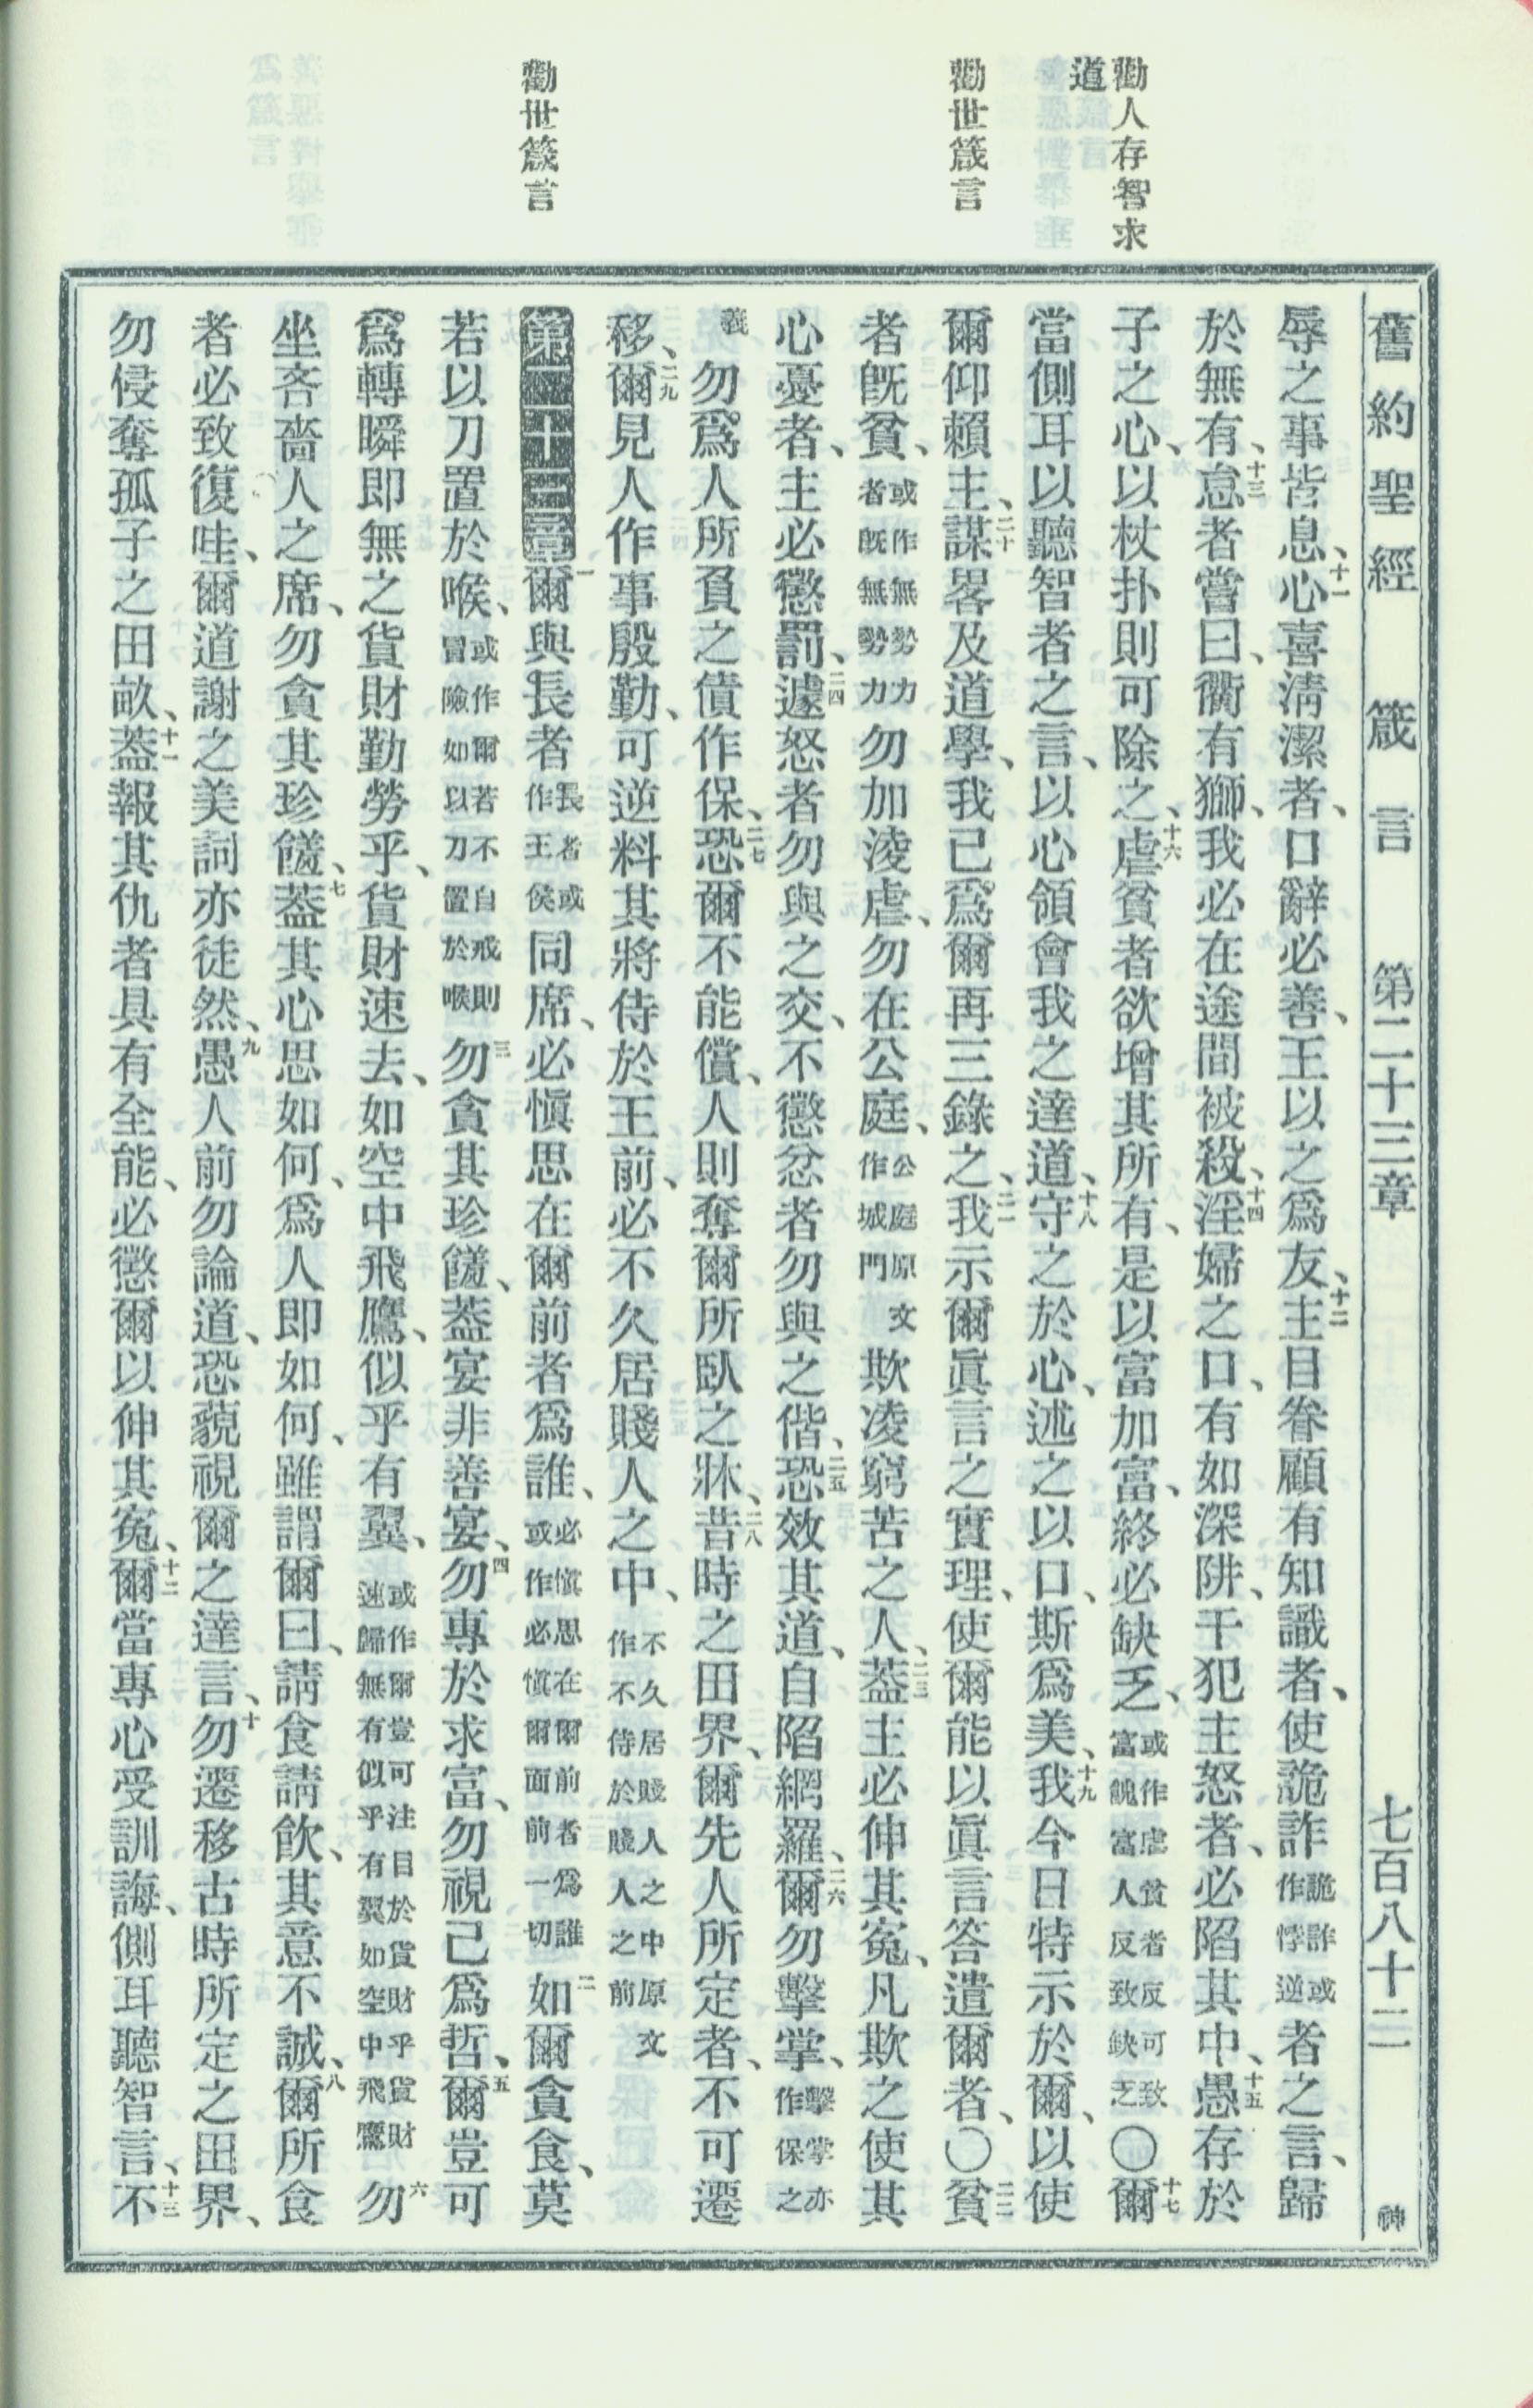 勸人存智求
道
勸世箴言
勸世箴言
舊約聖經　箴言　第二十三章　七百八十二　神
辱之事皆息、十一心喜淸潔者、口辭必善、王以之爲友、十二主目眷顧有知識者、使詭詐詭詐或作悖逆者之言、歸
於無有、十三怠者嘗曰、衢有獅、我必在途間被殺、十四淫婦之口、有如深阱、干犯主怒者、必陷其中、十五愚存於
子之心、以杖扑則可除之、十六虐貧者欲增其所有、是以富加富、終必缺乏、或作虐貧者反可致富餽富人反致缺乏〇十七爾
當側耳以聽智者之言、以心領會我之達道、十八守之於心、述之以口、斯爲美、十九我今日特示於爾、以使
爾仰賴主、二十謀畧及道學、我已爲爾再三錄之、二一我示爾眞言之實理、使爾能以眞言答遣爾者、〇二二貧
者旣貧、或作無勢力者旣無勢力勿加淩虐、勿在公庭、公庭原文作城門欺凌窮苦之人、二三蓋主必伸其冤、凡欺之使其
心憂者、主必懲罰、二四遽怒者勿與之交、不懲忿者勿與之偕、二五恐效其道、自陷網羅、二六爾勿擊掌、擊掌亦作保之
義勿爲人所負之債作保、二七恐爾不能償、人則奪爾所臥之牀、二八昔時之田界、爾先人所定者、不可遷
移、二九爾見人作事殷勤、可逆料其將侍於王前、必不久居賤人之中、不久居賤人之中原文作不侍於賤人之前
第二十三章一爾與長者長者或作王侯同席、必愼思在爾前者爲誰、必愼思在爾前者爲誰或作必愼爾面前一切二如爾貪食、莫
若以刀置於喉、或作爾若不自戒則冒險如以刀置於喉三勿貪其珍饈、蓋宴非善宴、四勿專於求富、勿視己爲哲、五爾豈可
爲轉瞬即無之貨財勤勞乎、貨財速去、如空中飛鷹、似乎有翼、或作爾豈可注目於貨財乎貨財速歸無有似乎有翼如空中飛鷹六勿
坐吝嗇人之席、勿貪其珍饈、七蓋其心思如何、爲人即如何、雖謂爾曰、請食請飮、其意不誠、八爾所食
者必致復哇、爾道謝之美詞亦徒然、九愚人前勿論道、恐藐視爾之達言、十勿遷移古時所定之田界、
勿侵奪孤子之田畝、十一蓋報其仇者具有全能、必懲爾以伸其冤、十二爾當專心受訓誨、側耳聽智言、十三不